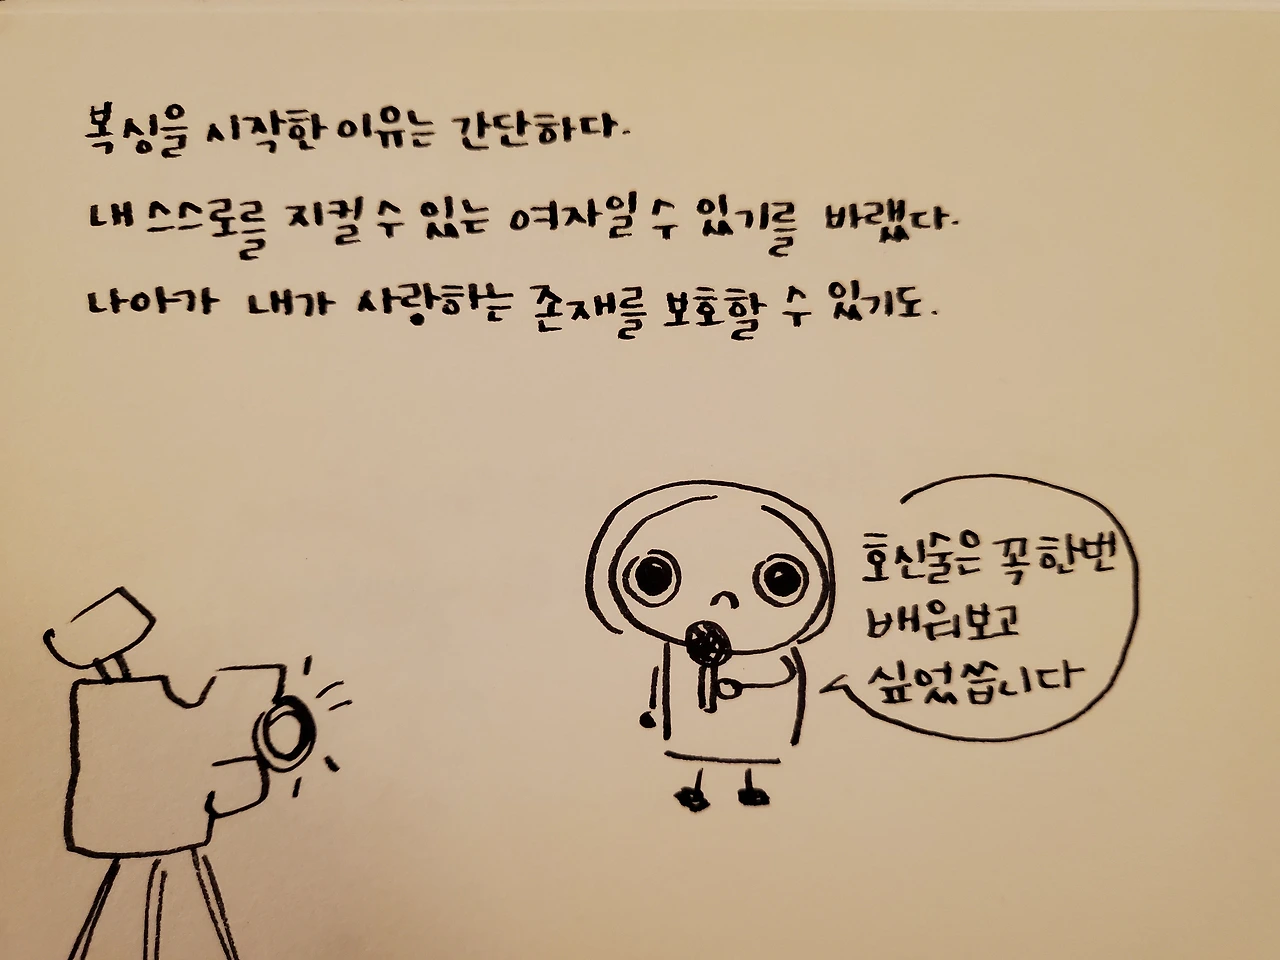 복싱을 시작한 이유는 간단하다.
내 스스로를 지킬 수 있는 여자일 수 있기를 바랬다.
나아가 내가 사랑하는 존재를 보호할 수 있기도.
호신술은 꼭 한번
배워보고
싶었씁니다